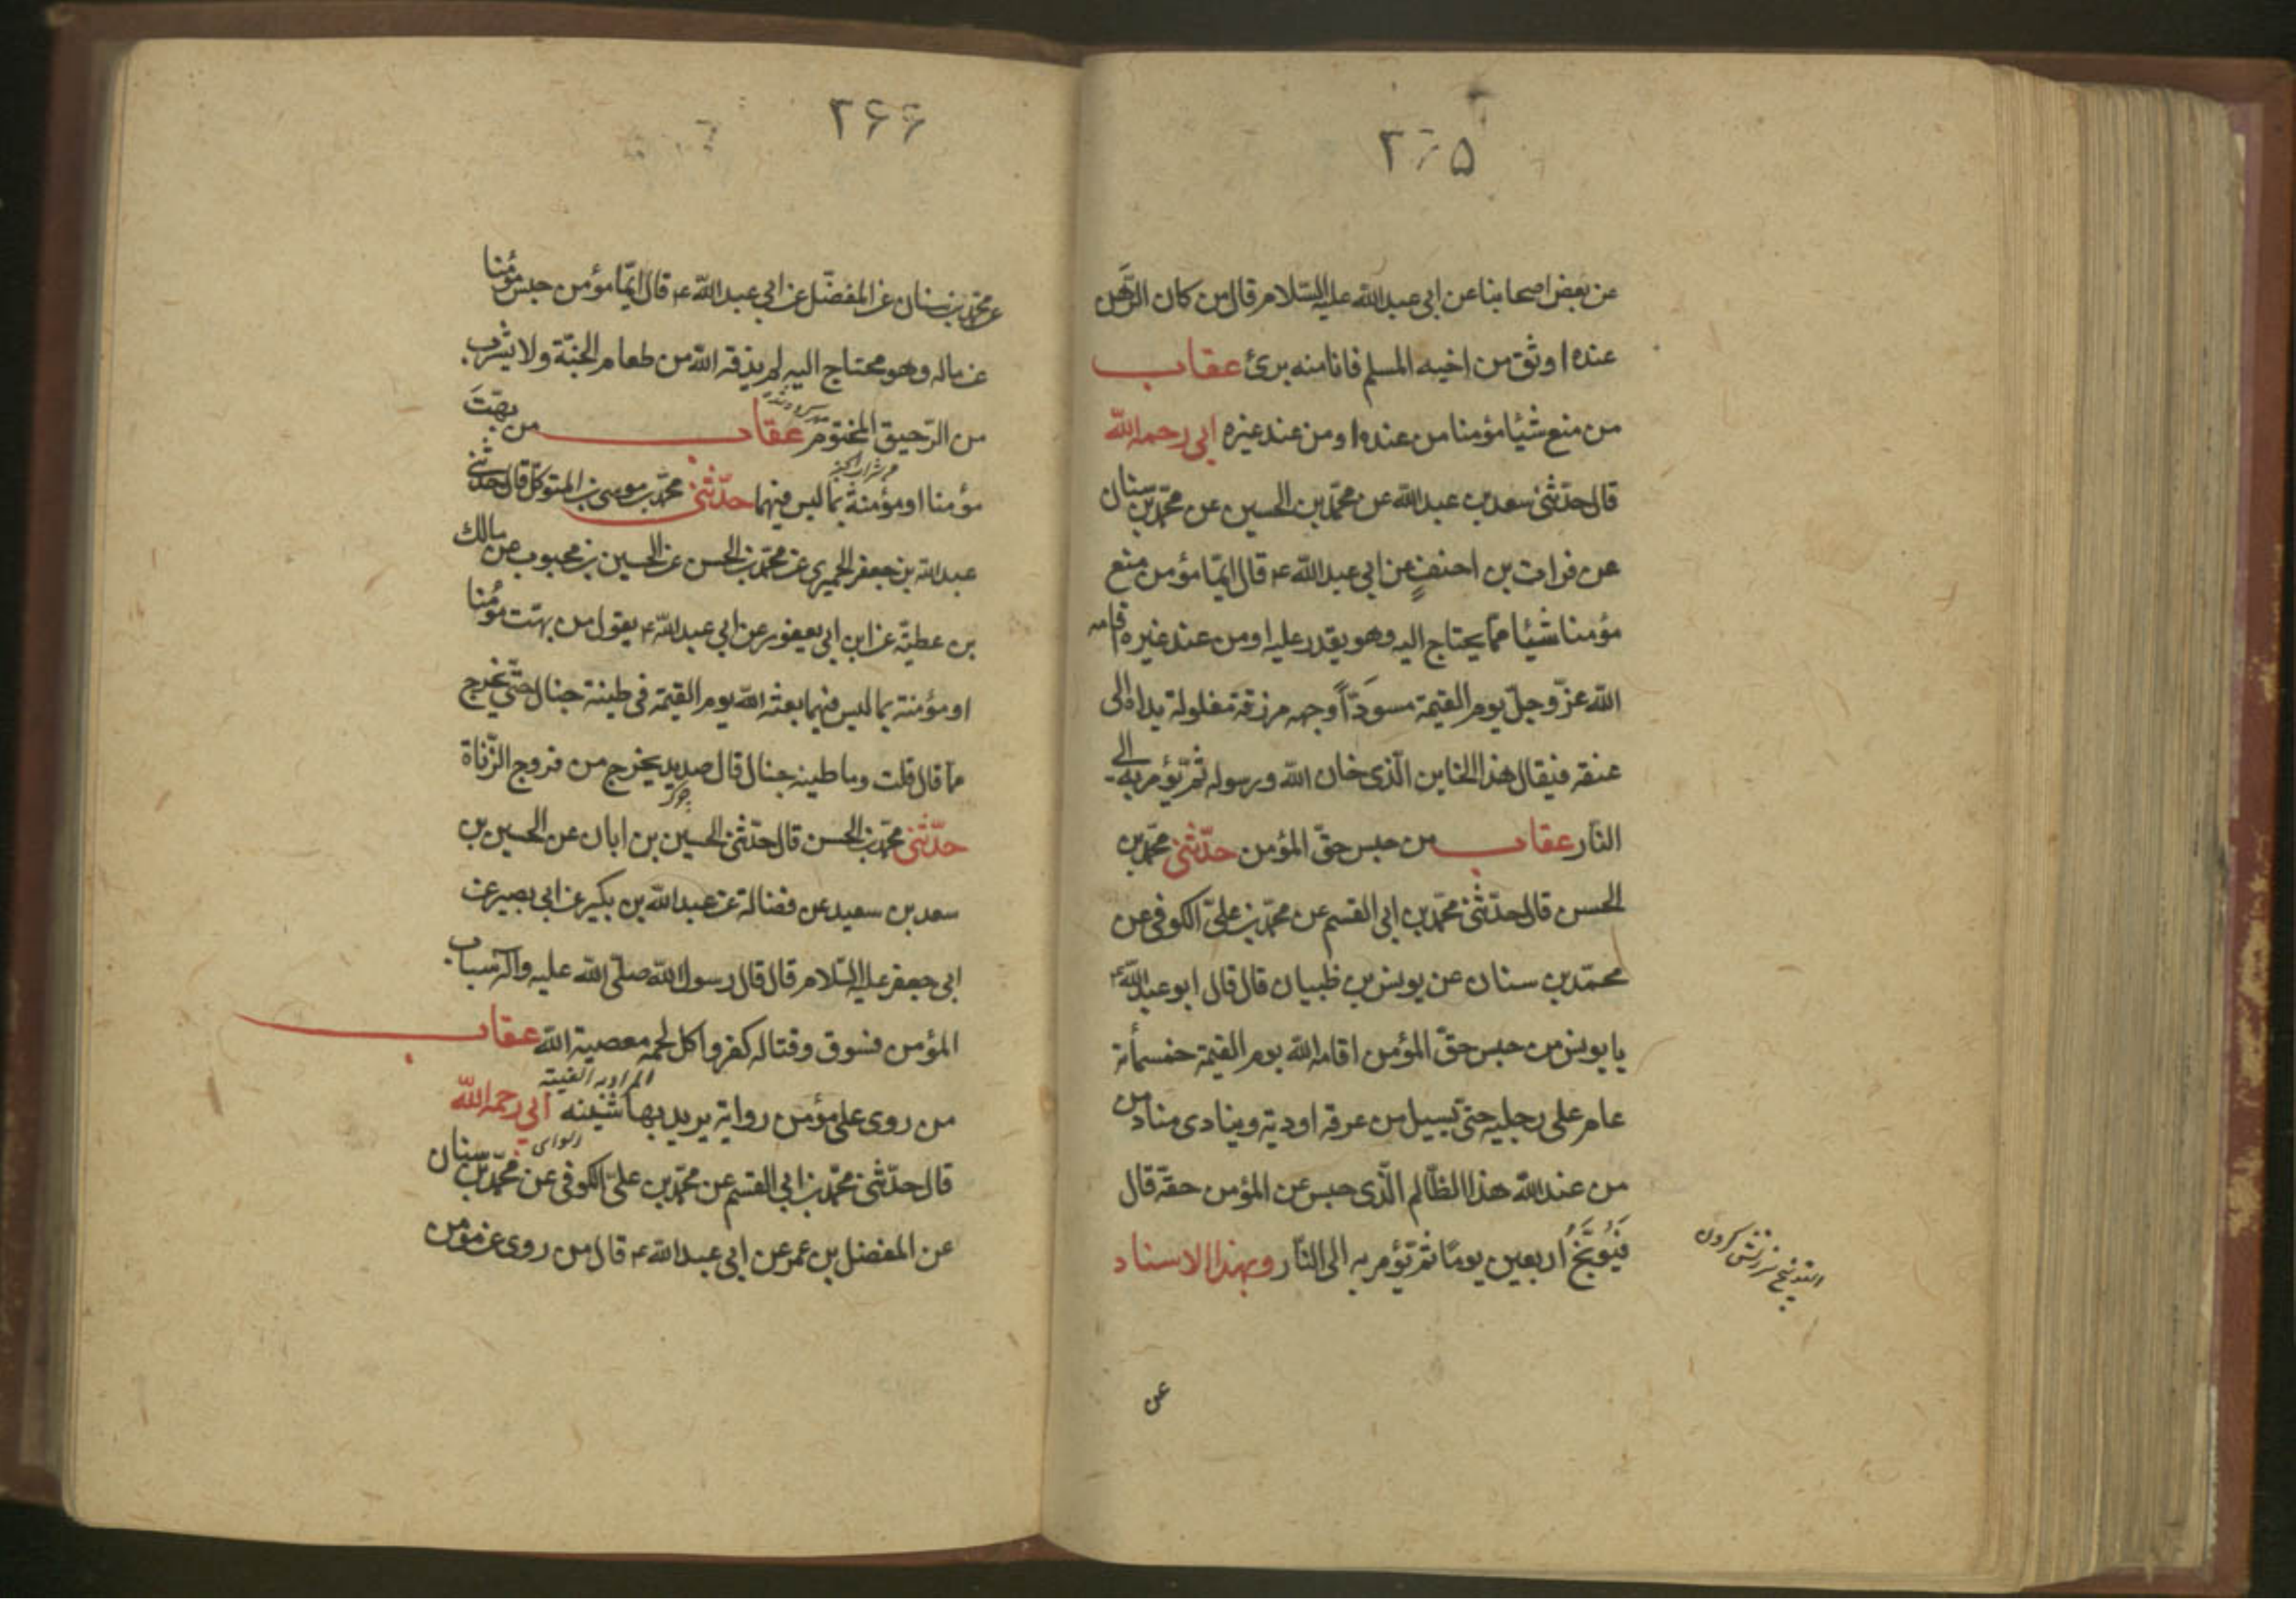 ۲۶۵
عن بعض اصحابنا عن ابى عبد الله عليه السلام قال من كان الرهن
عنده اوثق من اخيه المسلم فانا منه برئ عقاب
من منع شيئا مؤمنا من عنده او من عند غيره ابى رحمه الله
قال حدّثنى سعد بن عبد الله عن محمّد بن الحسين عن محمّد بن سنان
عن فرات بن احنف عن ابى عبد الله ع قال ايّما مؤمن منع
مؤمنا شيئا ممّا يحتاج اليه وهو يقدر عليه او من عند غيره اقامه
الله عزّ وجلّ يوم القيمة مسودّاً وجهه مزرقة مغلولة يداه الى
عنقه فيقال هذا الخاين الّذى خان الله ورسوله ثمّ يؤمر به الى
النّار عقاب من حبس حقّ المؤمن حدّثنى محمّد بن
الحسن قال حدّثنى محمّد بن ابى القسم عن محمّد بن علىّ الكوفى عن
محمّد بن سنان عن يونس بن ظبيان قال قال ابو عبد الله ع
يا يونس من حبس حقّ المؤمن اقامه الله يوم القيمة خمسمأة
عام على رجليه حتى يسيل من عرقه اودية وينادى مناد من
من عند الله هذا الظّالم الّذى حبس عن المؤمن حقّه قال
فَيُوَبَّخُ اربعين يومًا ثمّ يؤمر به الى النّار وبهذا الاسناد
التوبيخ سرزنش كردن
عن
۲۶۶
عن محمّد بن سنان عن المفضّل عن ابى عبد الله ع قال ايّما مؤمن حبس مؤمنا
عن ماله وهو محتاج اليه لم يذقه الله من طعام الجنّة ولا يشرب
من الرّحيق المختوم عقاب من بهّتَ
مؤمنا او مؤمنة بما ليس فيهما حدّثنى محمّد بن موسى بن المتوكّل قال حدّثنى
عبد الله بن جعفر الحميرى عن محمّد بن الحسن عن الحسين بن محبوب عن مالك
بن عطيّة عن ابن ابى يعفور عن ابى عبد الله ع يقول من بهّت مؤمنا
او مؤمنة بما ليس فيهما بعثه الله يوم القيمة فى طينة خبال حتّى يخرج
ممّا قال قلت وما طينة خبال قال صديد يخرج من فروج الزّناة
چرك
حدّثنى محمّد بن الحسن قال حدّثنى الحسين بن ابان عن الحسين بن
سعد بن سعيد عن فضالة عن عبد الله بن بكير عن ابى بصير عن
ابى جعفر عليه السّلام قال قال رسول الله صلّى الله عليه وآله سباب
المؤمن فسوق وقتاله كفر واكل لحمه معصية الله عقاب
المراد به الغيبة
من روى على مؤمن رواية يريد بها شينه ابى رحمه الله
رسواى
قال حدّثنى محمّد بن ابى القسم عن محمّد بن علىّ الكوفى عن محمّد بن سنان
عن المفضل بن عمر عن ابى عبد الله ع قال من روى عن مؤمن